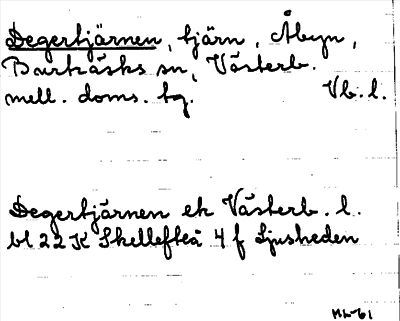 Degertjärnen, tjärn, Åbyn,
Burträsks sn, Västerb.
mell. doms. tg. Vb. l.
Degertjärnen ek Västerb. l.
bl 22 K Skellefteå 4 f Ljusheden